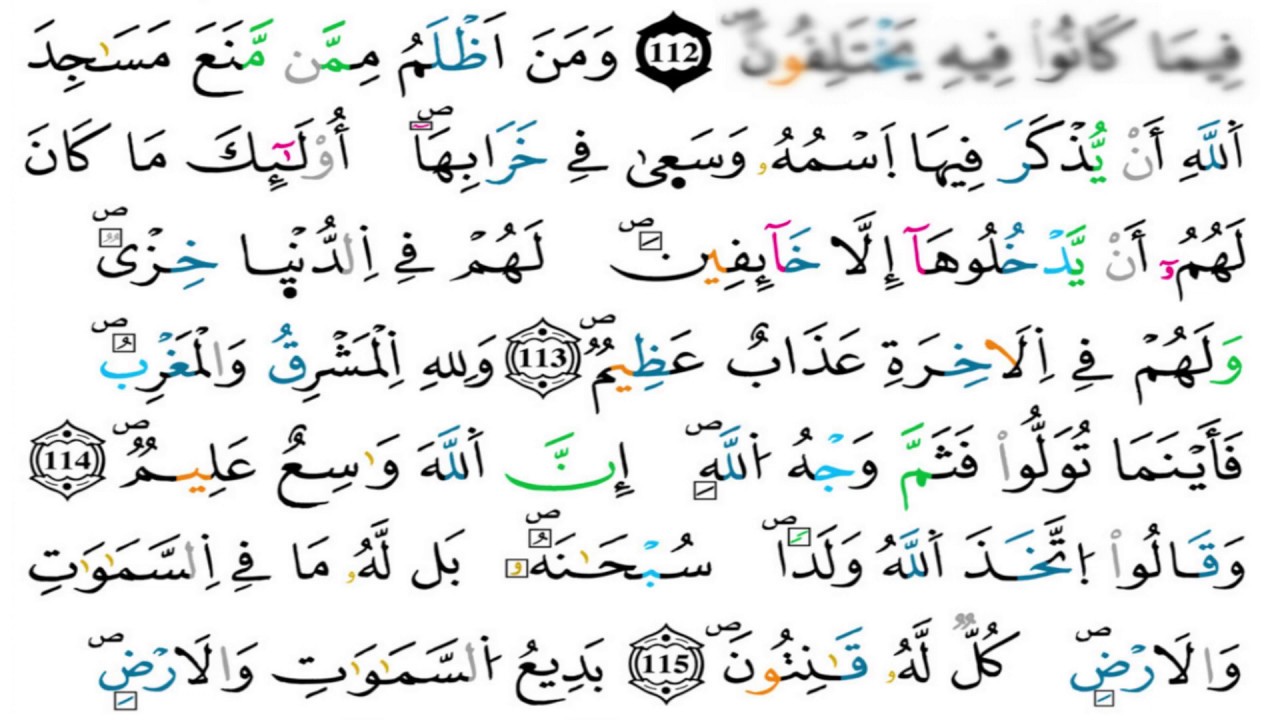 فِيمَا كَانُواْ فِيهِ يَخْتَلِفُونَۖ 112 وَمَنَ اَظْلَمُ مِمَّن مَّنَعَ مَسَٰجِدَ
اَللَّهِ أَنْ يُّذْكَرَ فِيهَا اَسْمُهُۥ وَسَع۪يٰ فِے خَرَابِهَآۖ أُوْلَٰٓئِكَ مَا كَانَ
لَهُمُۥٓ أَنْ يَّدْخُلُوهَآ إِلَّا خَآئِفِينَۖ لَهُمْ فِے اِلدُّنْي۪ا خِزْيٌۖ
وَلَهُمْ فِے اِلَاخِرَةِ عَذَابٌ عَظِيمٌۖ 113 وَلِلهِ اِلْمَشْرِقُ وَالْمَغْرِبُۖ
فَأَيْنَمَا تُوَلُّواْ فَثَمَّ وَجْهُ اُللَّهِۖ إِنَّ اَللَّهَ وَٰسِعٌ عَلِيمٌۖ 114
وَقَالُواْ اُتَّخَذَ اَللَّهُ وَلَداًۖ سُبْحَٰنَهُۥۖ بَل لَّهُۥ مَا فِے اِلسَّمَٰوَٰتِ
وَالَارْضِۖ كُلٌّ لَّهُۥ قَٰنِتُونَۖ 115 بَدِيعُ اُلسَّمَٰوَٰتِ وَالَارْضِۖ